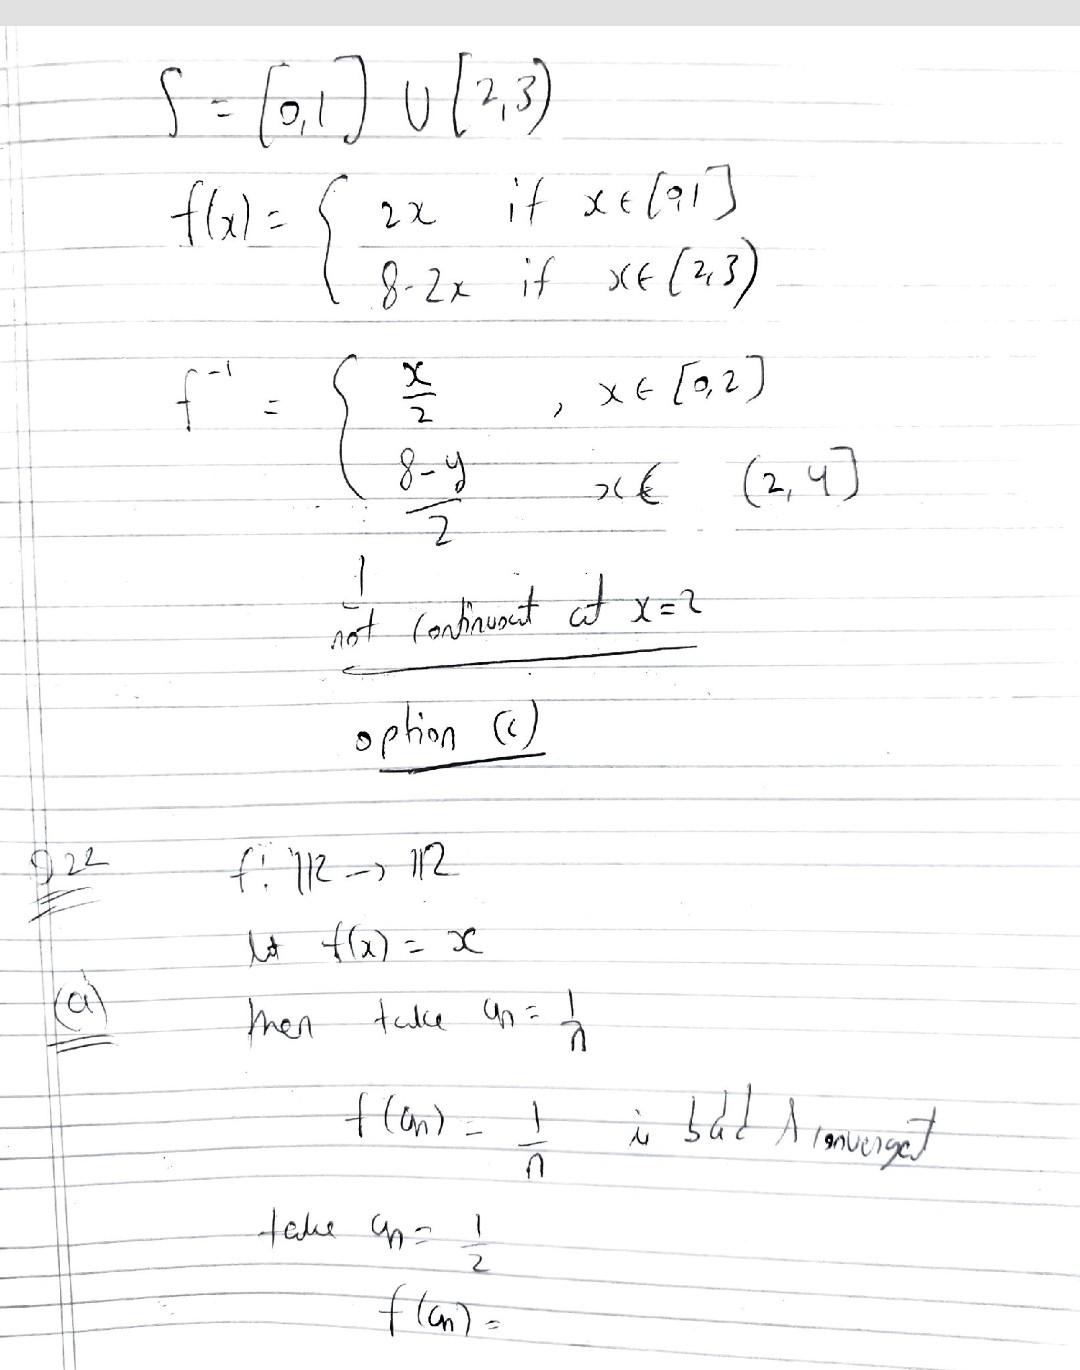 S = [0,1] ∪ [2,3)
f(x) = { 2x if x ∈ [0,1]
8-2x if x ∈ [2,3)
f⁻¹ = { x/2 , x ∈ [0,2]
8-y/2 x ∈ (2,4]
not continuout at x=2
option (c)
Q22 f: ℝ → ℝ
let f(x) = x
(a) then take an = 1/n
f(an) = 1/n is bdd & convergat
take an = 1/2
f(an) =